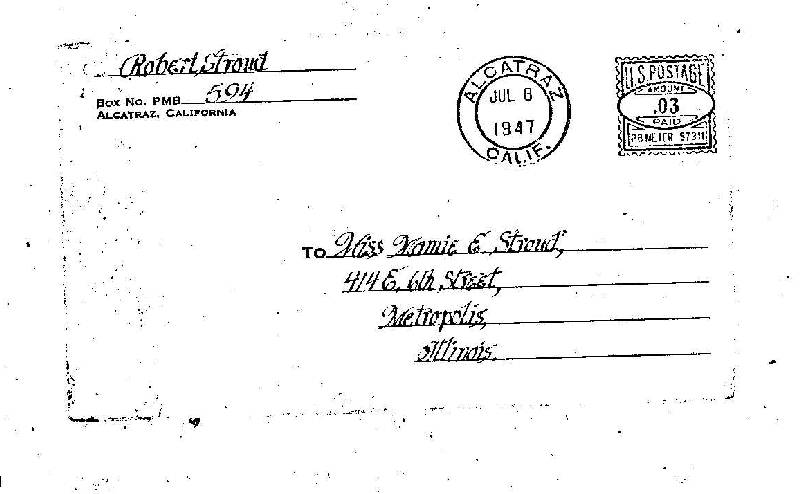 Robert Stroud
Box No. PMB 594
ALCATRAZ, CALIFORNIA
ALCATRAZ
JUL 8
1947
CALIF.
U.S. POSTAGE
AMOUNT
.03
PAID
PB METER 57311
TO Miss Mamie E. Stroud,
414 E. 6th Street,
Metropolis,
Illinois.